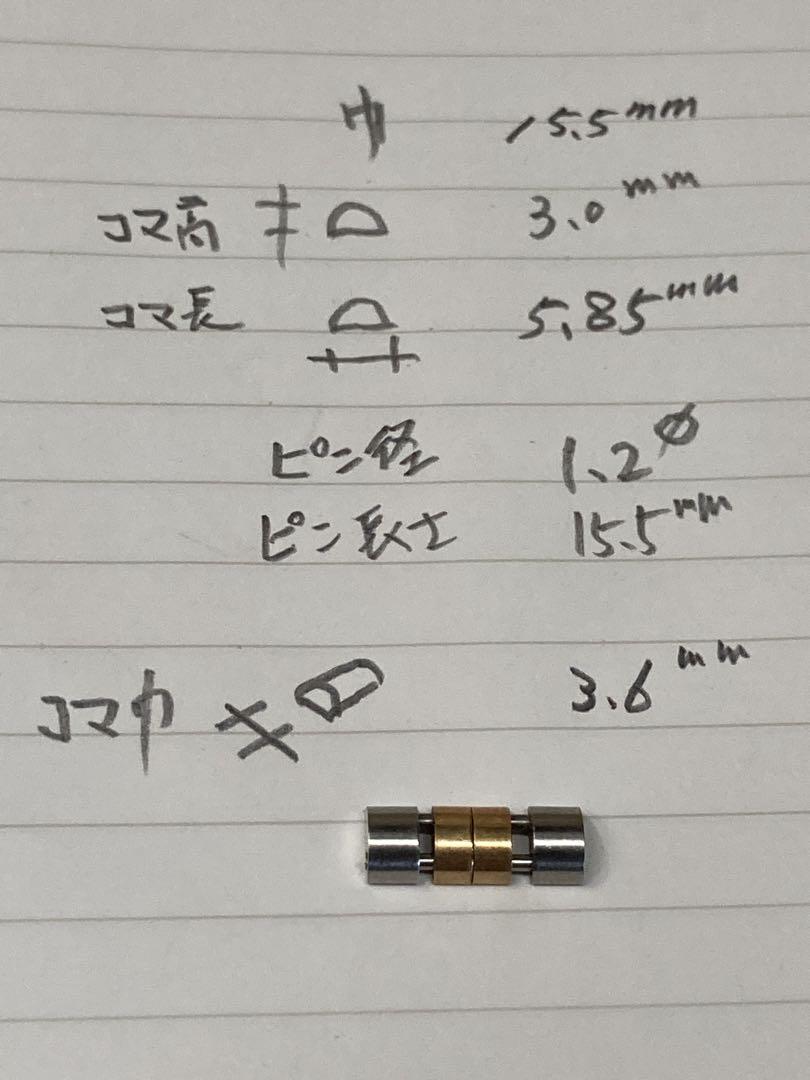 巾 15.5mm
コマ高 3.0mm
コマ長 5.85mm
ピン径 1.2φ
ピン長さ 15.5mm
コマ巾 3.6mm